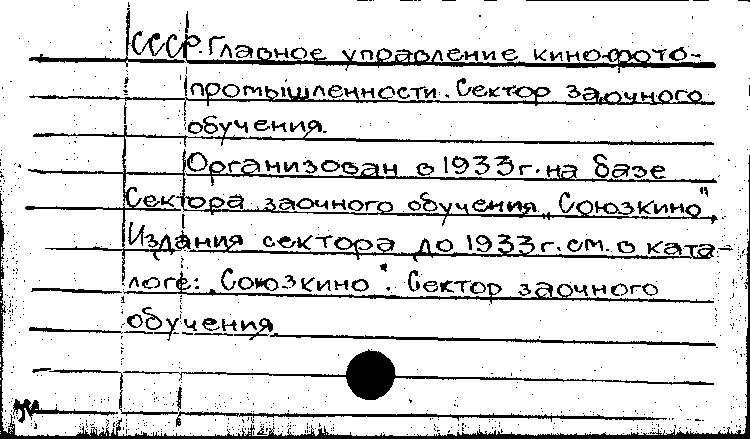 СССР. Главное управление кино-фото-
промышленности. Сектор заочного
обучения.
Организован в 1933 г. на базе
Сектора заочного обучения „Союзкино".
Издания сектора до 1933 г. см. в ката-
логе: „Союзкино". Сектор заочного
обучения